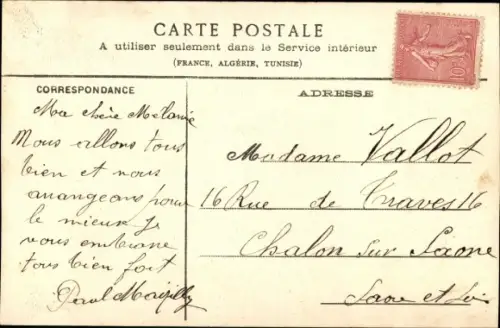 CARTE POSTALE
A utiliser seulement dans le Service intérieur
(FRANCE, ALGÉRIE, TUNISIE)
CORRESPONDANCE
ADRESSE
10c
Ma chère Mélanie
Nous allons tous
bien et nous
arrangeons pour
le mieux je
vous embrasse
tous bien fort
Paul
Madame Vallot
16 Rue de Traves 16
Chalon sur Saone
Saone et Loi